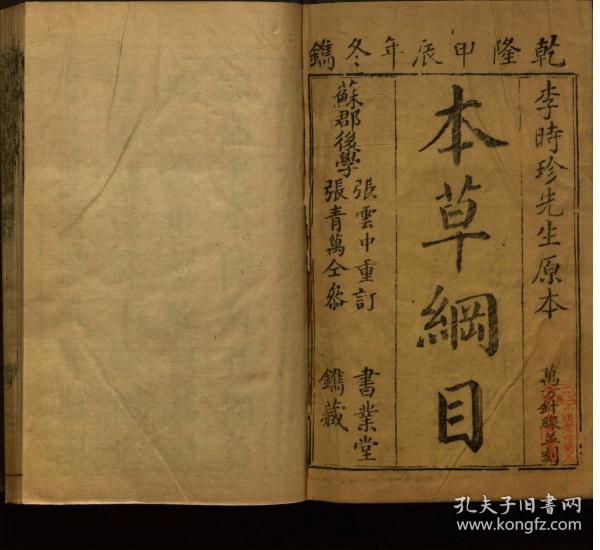 乾隆甲辰年冬鐫
李時珍先生原本
萬方針線並刻
本草綱目
蘇郡後學
張雲中重訂
張青萬仝參
書業堂
鐫藏
孔夫子旧书网
www.kongfz.com